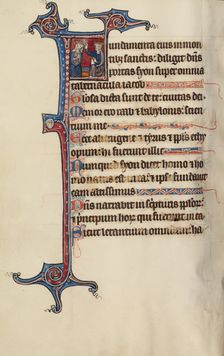 undamenta eius in mon
tibus sanctis: diligit dns
portas syon super omnia
tabernacula iacob
Gloriosa dicta sunt de te: ciuitas dei
Memor ero raab et babylonis: scien
tium me
Ecce alienigene et tyrus et ppls ethy
opum: hi fuerunt illic
Numquid syon dicet homo et ho
mo natus est in ea: et ipse fundauit
eam altissimus
Dns narrabit in scripturis pplorum:
et principum horum qui fuerunt in ea
Sicut letantium omnium: ha